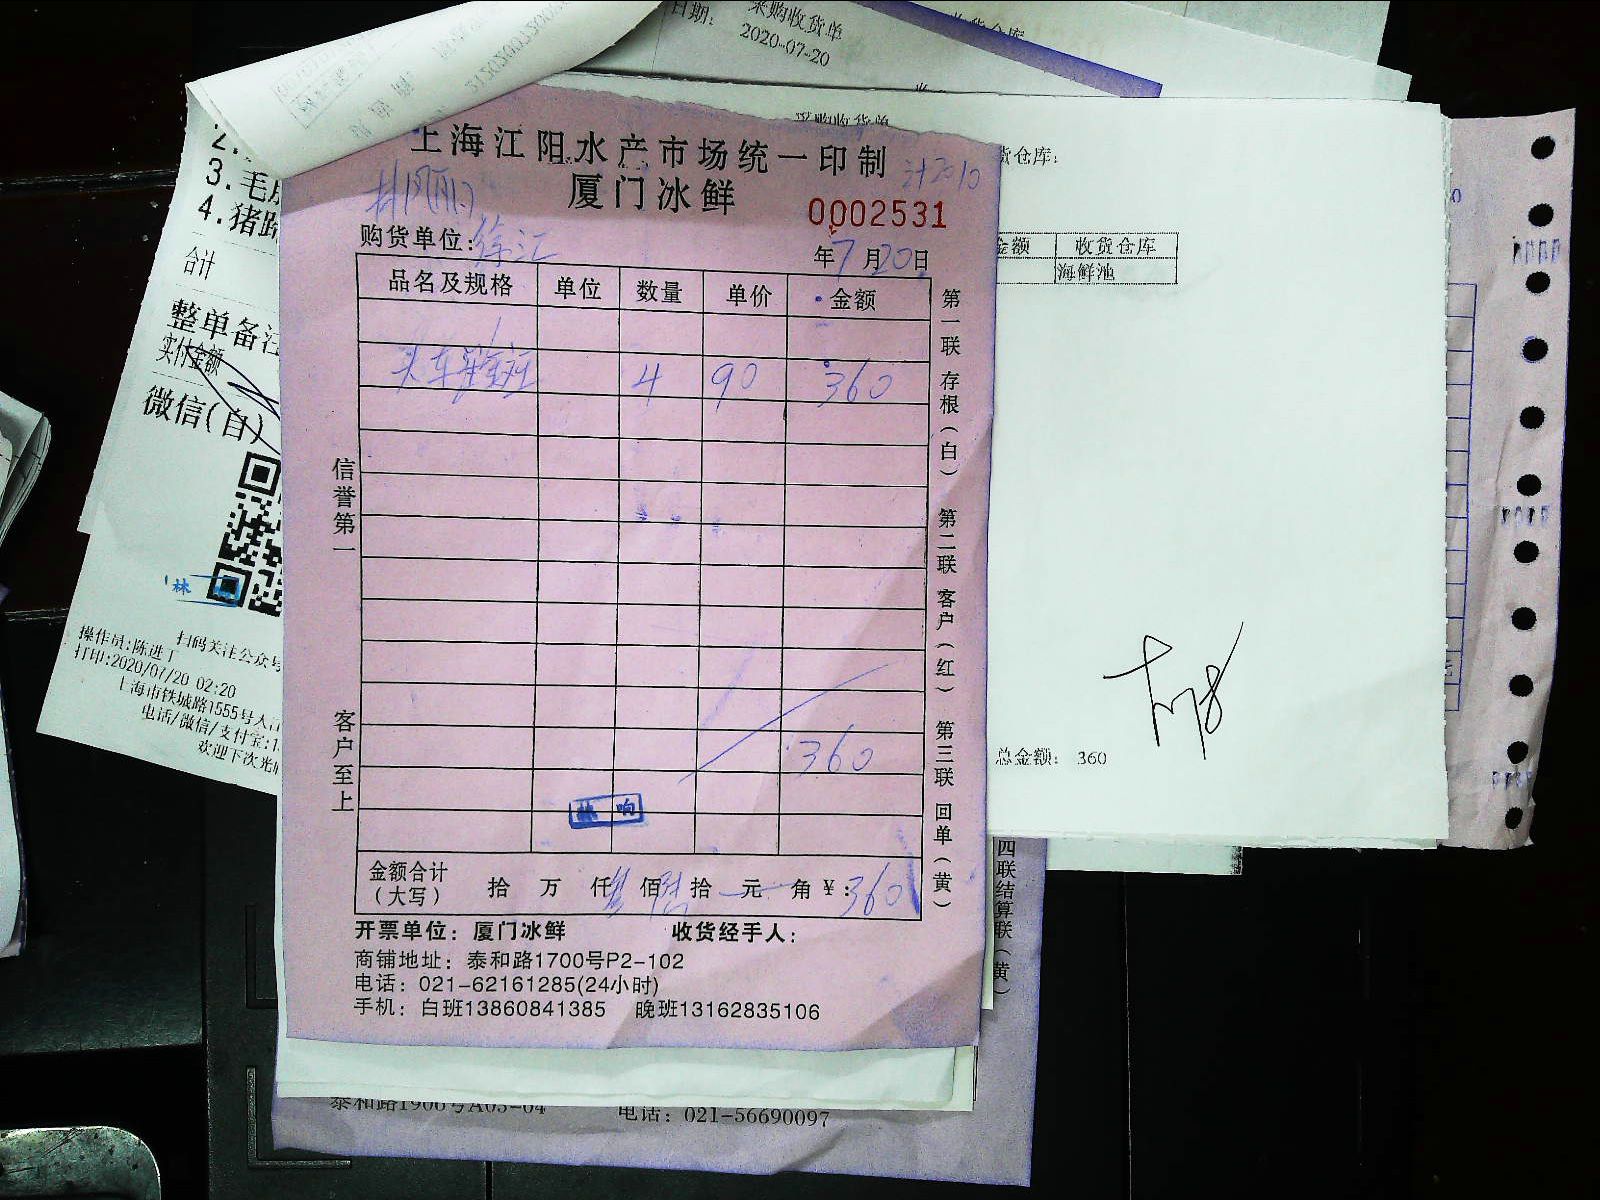 采购收货单
日期:
2020-07-20
采购收货单
货仓库:
金额 收货仓库
海鲜池
总金额: 360
2.
3.毛
4.猪蹄
合计
整单备注
实付金额
微信(自)
林
扫码关注公众号
操作员:陈进丁
打印:2020/07/20 02:20
上海市铁城路1555号
电话/微信/支付宝:1
欢迎下次光临
上海江阳水产市场统一印制
厦门冰鲜
0002531
购货单位:徐汇
年7月20日
品名及规格 单位 数量 单价 金额
4 90 360
360
林 响
金额合计(大写) 拾 万 仟 叁 佰 陆 拾 元 角 ¥:360
信誉第一
客户至上
第一联 存根(白) 第二联 客户(红) 第三联 回单(黄)
开票单位: 厦门冰鲜 收货经手人:
商铺地址: 泰和路1700号P2-102
电话: 021-62161285(24小时)
手机: 白班13860841385 晚班13162835106
四联结算联(黄)
泰和路1906号A05-04 电话: 021-56690097